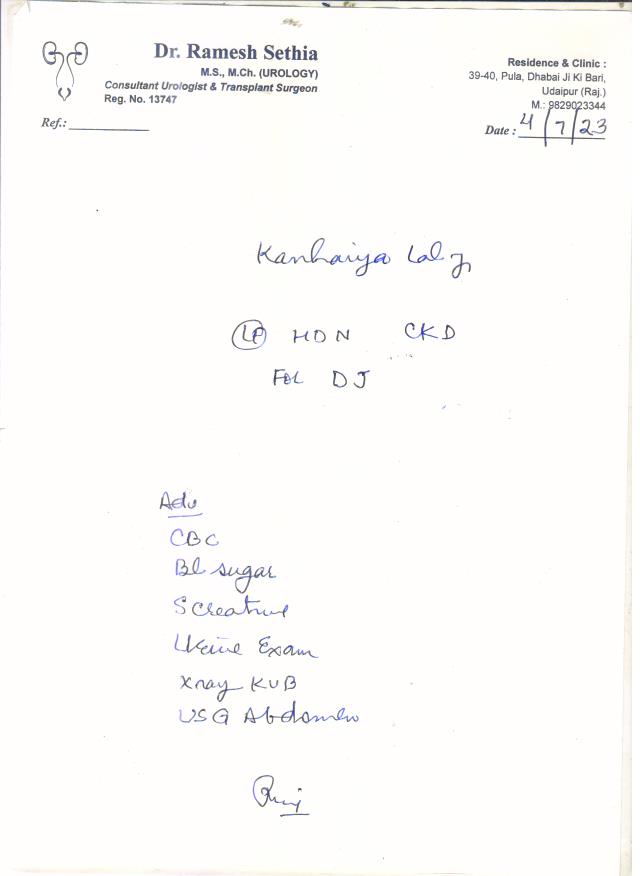 Dr. Ramesh Sethia
M.S., M.Ch. (UROLOGY)
Consultant Urologist & Transplant Surgeon
Reg. No. 13747
Ref.:
Residence & Clinic :
39-40, Pula, Dhabai Ji Ki Bari,
Udaipur (Raj.)
M.: 9829023344
Date : 4/7/23
Kanhaiya Lal Ji
HDN CKD
DJ
Adv
CBC
Bl sugar
S Creatine
Urine Exam
Xray KUB
USG Abdomen